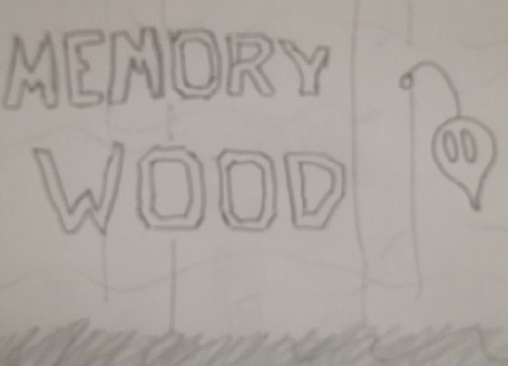 MEMORY
WOOD